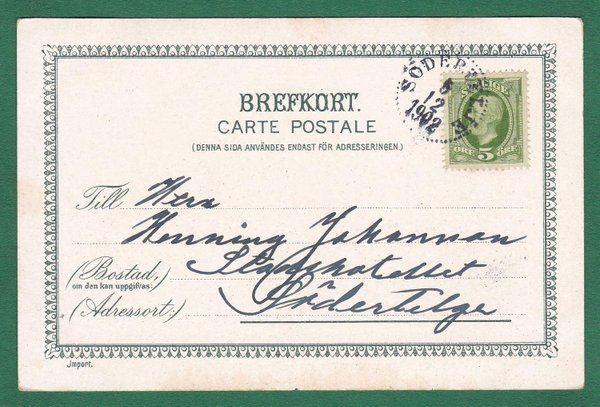 BREFKORT.
CARTE POSTALE
(DENNA SIDA ANVÄNDES ENDAST FÖR ADRESSERINGEN.)
SÖDERTELJE
5
12
1902
SVERIGE
ÖRE 5 ÖRE
Till Herr
Henning Johannson
(Bostad,
om den kan uppgifvas:)
Stadshotellet
(Adressort:) Södertelge
Import.